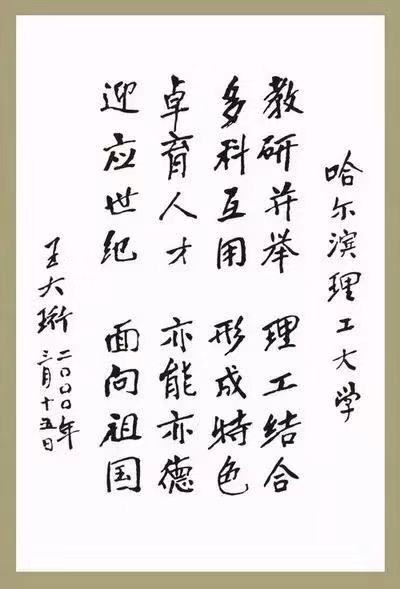 哈尔滨理工大学
教研并举 理工结合
多科互用 形成特色
卓育人才 亦能亦德
迎应世纪 面向祖国
王大珩
二〇〇〇年
三月十五日